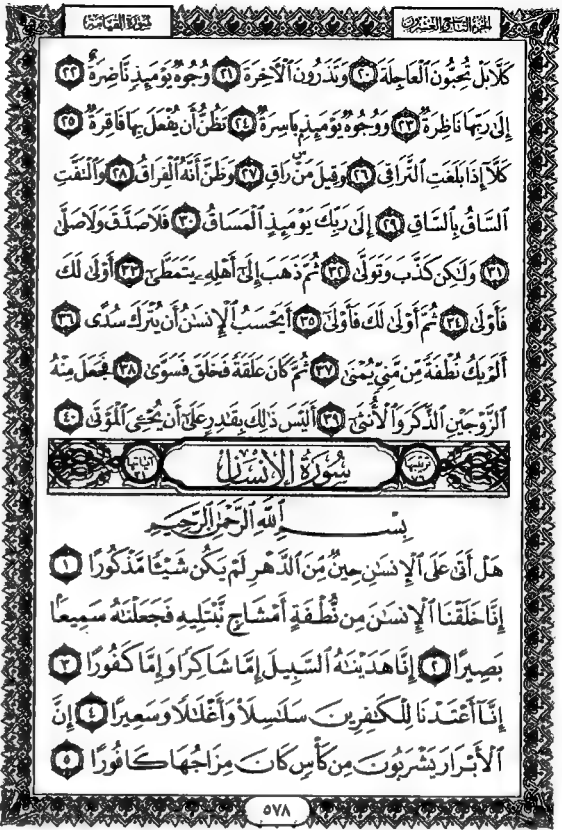 سُورَةُ القِيَامَةِ
الجُزءُ التَّاسِعُ وَالعِشْرُونَ
كَلَّا بَلْ تُحِبُّونَ ٱلْعَاجِلَةَ ٢٠ وَتَذَرُونَ ٱلْأَخِرَةَ ٢١ وُجُوهٌ يَوْمَئِذٍ نَّاضِرَةٌ ٢٢
إِلَىٰ رَبِّهَا نَاظِرَةٌ ٢٣ وَوُجُوهٌ يَوْمَئِذٍ بَاسِرَةٌ ٢٤ تَظُنُّ أَن يُفْعَلَ بِهَا فَاقِرَةٌ ٢٥
كَلَّآ إِذَا بَلَغَتِ ٱلتَّرَاقِىَ ٢٦ وَقِيلَ مَنْ رَاقٍ ٢٧ وَظَنَّ أَنَّهُ ٱلْفِرَاقُ ٢٨ وَٱلْتَفَّتِ
ٱلسَّاقُ بِٱلسَّاقِ ٢٩ إِلَىٰ رَبِّكَ يَوْمَئِذٍ ٱلْمَسَاقُ ٣٠ فَلَا صَدَّقَ وَلَا صَلَّىٰ
٣١ وَلَٰكِن كَذَّبَ وَتَوَلَّىٰ ٣٢ ثُمَّ ذَهَبَ إِلَىٰٓ أَهْلِهِۦ يَتَمَطَّىٰٓ ٣٣ أَوْلَىٰ لَكَ
فَأَوْلَىٰ ٣٤ ثُمَّ أَوْلَىٰ لَكَ فَأَوْلَىٰٓ ٣٥ أَيَحْسَبُ ٱلْإِنسَٰنُ أَن يُتْرَكَ سُدًى ٣٦
أَلَمْ يَكُ نُطْفَةً مِّن مَّنِىٍّ يُمْنَىٰ ٣٧ ثُمَّ كَانَ عَلَقَةً فَخَلَقَ فَسَوَّىٰ ٣٨ فَجَعَلَ مِنْهُ
ٱلزَّوْجَيْنِ ٱلذَّكَرَ وَٱلْأُنثَىٰٓ ٣٩ أَلَيْسَ ذَٰلِكَ بِقَٰدِرٍ عَلَىٰٓ أَن يُحْـِۧىَ ٱلْمَوْتَىٰ ٤٠
ترتيبها ٧٦ سُورَةُ الإِنسَان آياتها ٣١
بِسْمِ ٱللَّهِ ٱلرَّحْمَٰنِ ٱلرَّحِيمِ
هَلْ أَتَىٰ عَلَى ٱلْإِنسَٰنِ حِينٌ مِّنَ ٱلدَّهْرِ لَمْ يَكُن شَيْـًٔا مَّذْكُورًا ١
إِنَّا خَلَقْنَا ٱلْإِنسَٰنَ مِن نُّطْفَةٍ أَمْشَاجٍ نَّبْتَلِيهِ فَجَعَلْنَٰهُ سَمِيعًۢا
بَصِيرًا ٢ إِنَّا هَدَيْنَٰهُ ٱلسَّبِيلَ إِمَّا شَاكِرًا وَإِمَّا كَفُورًا ٣
إِنَّآ أَعْتَدْنَا لِلْكَٰفِرِينَ سَلَٰسِلَا۟ وَأَغْلَٰلًا وَسَعِيرًا ٤ إِنَّ
ٱلْأَبْرَارَ يَشْرَبُونَ مِن كَأْسٍ كَانَ مِزَاجُهَا كَافُورًا ٥
٥٧٨